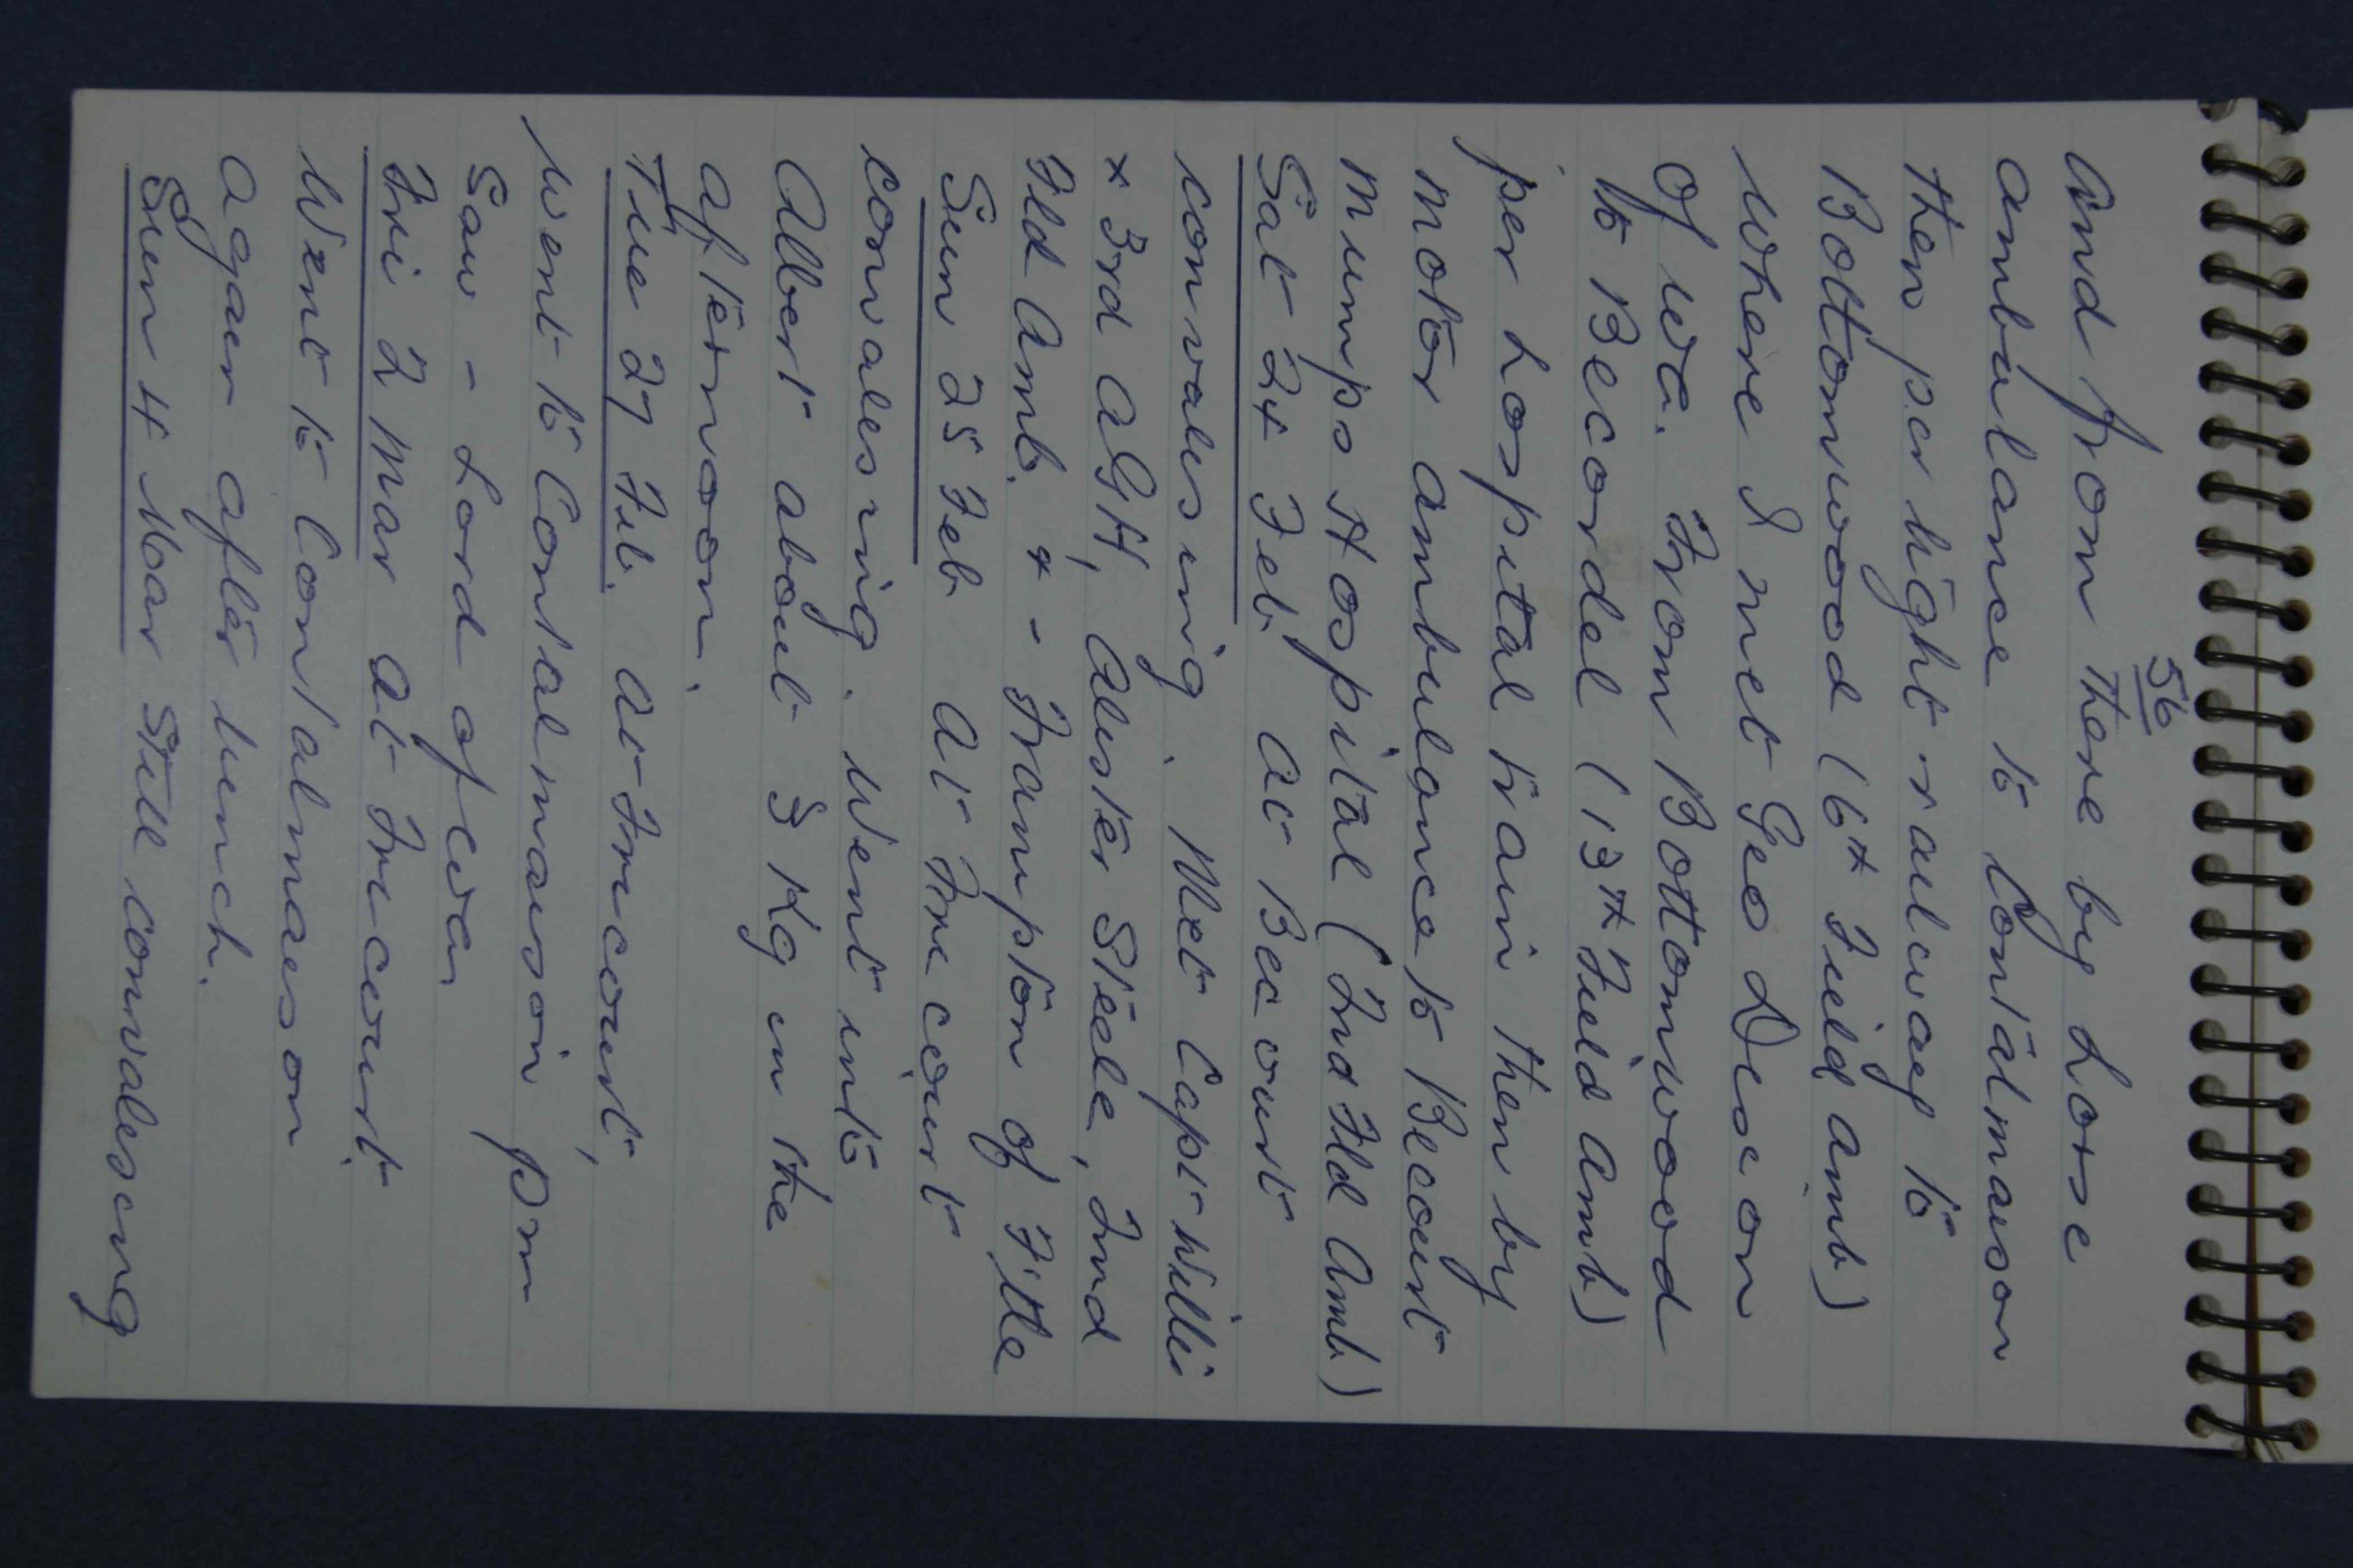 56
And from there by horse
ambulance to Contalmaison
then per light railway to
Bottomwood (6th Field Amb)
where I met Geo Deacon
of WA. From Bottomwood
to Becordel (13th Field Amb)
per hospital train then by
motor ambulance to Becourt
mumps Hospital (2nd Fld Amb)
Sat 24 Feb At Becourt
convalesing. Met Capt Willis
x 3rd AGH, Alister Steele, 2nd
Fld Amb. x - Frampton of F'tle
Sun 25 Feb At Fricourt
convalesing. Went into
Albert about 3 Kg in the
afternoon.
Tue 27 Feb. At Fricourt,
went to Contalmaison pm
Saw - Lord of WA.
Fri 2 Mar At Fricourt.
Went to Contalmaison
again after lunch.
Sun 4 Mar Still convalescing